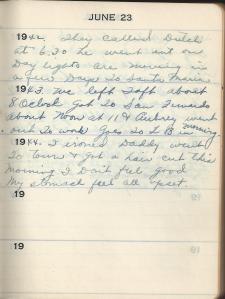 JUNE 23
1942. They called Dutch
at 6.30 he went out on
Day lights are moving in
a few Days to Santa Maria.
1943. We left Taft about
8 Oclock Got to San Fernando
about Noon at 11 & Aubrey went
out To work Goes to L B in morning.
1944. I ironed Daddy went
To town & got a hair cut this
morning I Don't feel good
My stomach feel all upset.
19
19